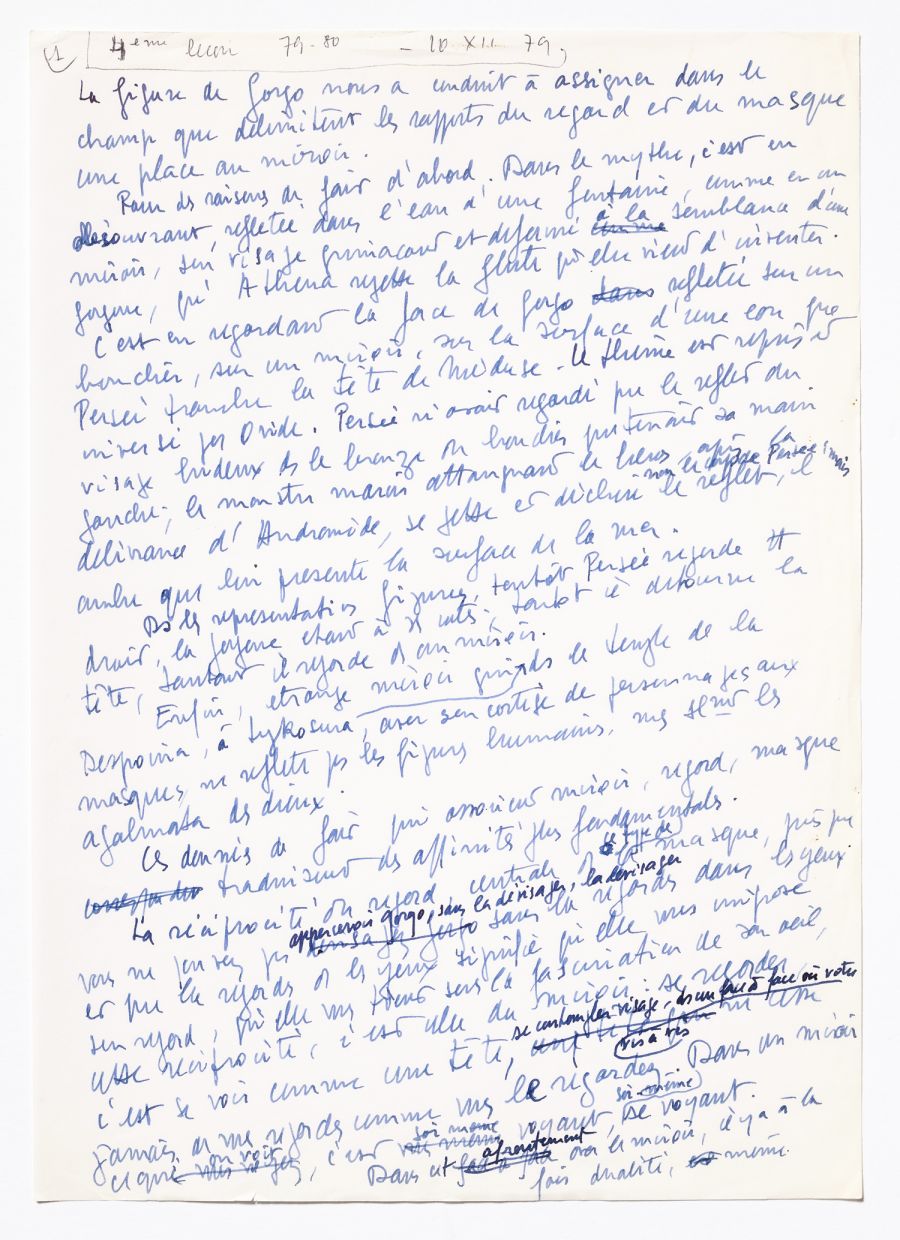 1
4eme leçon 79-80 - 10 XII 79,
La figure de Gorgo nous a conduit à assigner dans le
champ que délimitent les rapports du regard et du masque
une place au miroir.
Pour des raisons de fait d'abord. Dans le mythe, c'est en
découvrant, reflétée dans l'eau d'une fontaine, comme en un
miroir, son visage grimaçant et déformé à la semblance d'une
gorgone, qu'Athéna rejette la flûte qu'elle vient d'inventer.
C'est en regardant la face de Gorgo reflétée sur un
bouclier, sur un miroir, sur la surface d'une eau que
Persée tranche la tête de Méduse. Le thème est repris et
inversé par Ovide. Persée n'avait regardé que le reflet du
visage hideux ds le bronze du bouclier que tenait sa main
gauche; le monstre marin attaquant le héros, après la
délivrance d'Andromède, se jette et déchire non le Persée mais le reflet, l'
ombre que lui présente la surface de la mer.
Ds les représentations figurées, tantôt Persée regarde tt
droit, la gorgone étant à ses côtés; tantôt il détourne la
tête, tantôt il regarde ds un miroir.
Enfin, étrange miroir qui ds le temple de la
Despoina, à Lykosura, avec son cortège de personnages aux
masques, ne reflète pas les figures humaines, mais seulmt les
agalmata des dieux.
Ces données de fait qui associent miroir, regard, masque
traduisent des affinités plus fondamentales.
La réciprocité du regard, centrale ds ce type de masque, puisque
vous ne pouvez pas appercevoir Gorgo, sans la dévisager, la dévisager sans la regarder dans les yeux
et que la regarder ds les yeux signifie qu'elle vous impose
son regard, qu'elle vous tient sous la fascination de son oeil,
cette réciprocité, c'est celle du miroir: se regarder,
c'est se voir comme une tête, se contempler visage, ds un face à face où votre vis à vis
vous regarde comme vous le regardez. Dans un miroir
ce que on voit, c'est soi-même voyant, soi-même se voyant.
Dans cet afrontement avec le miroir, il y a à la
fois dualité, même